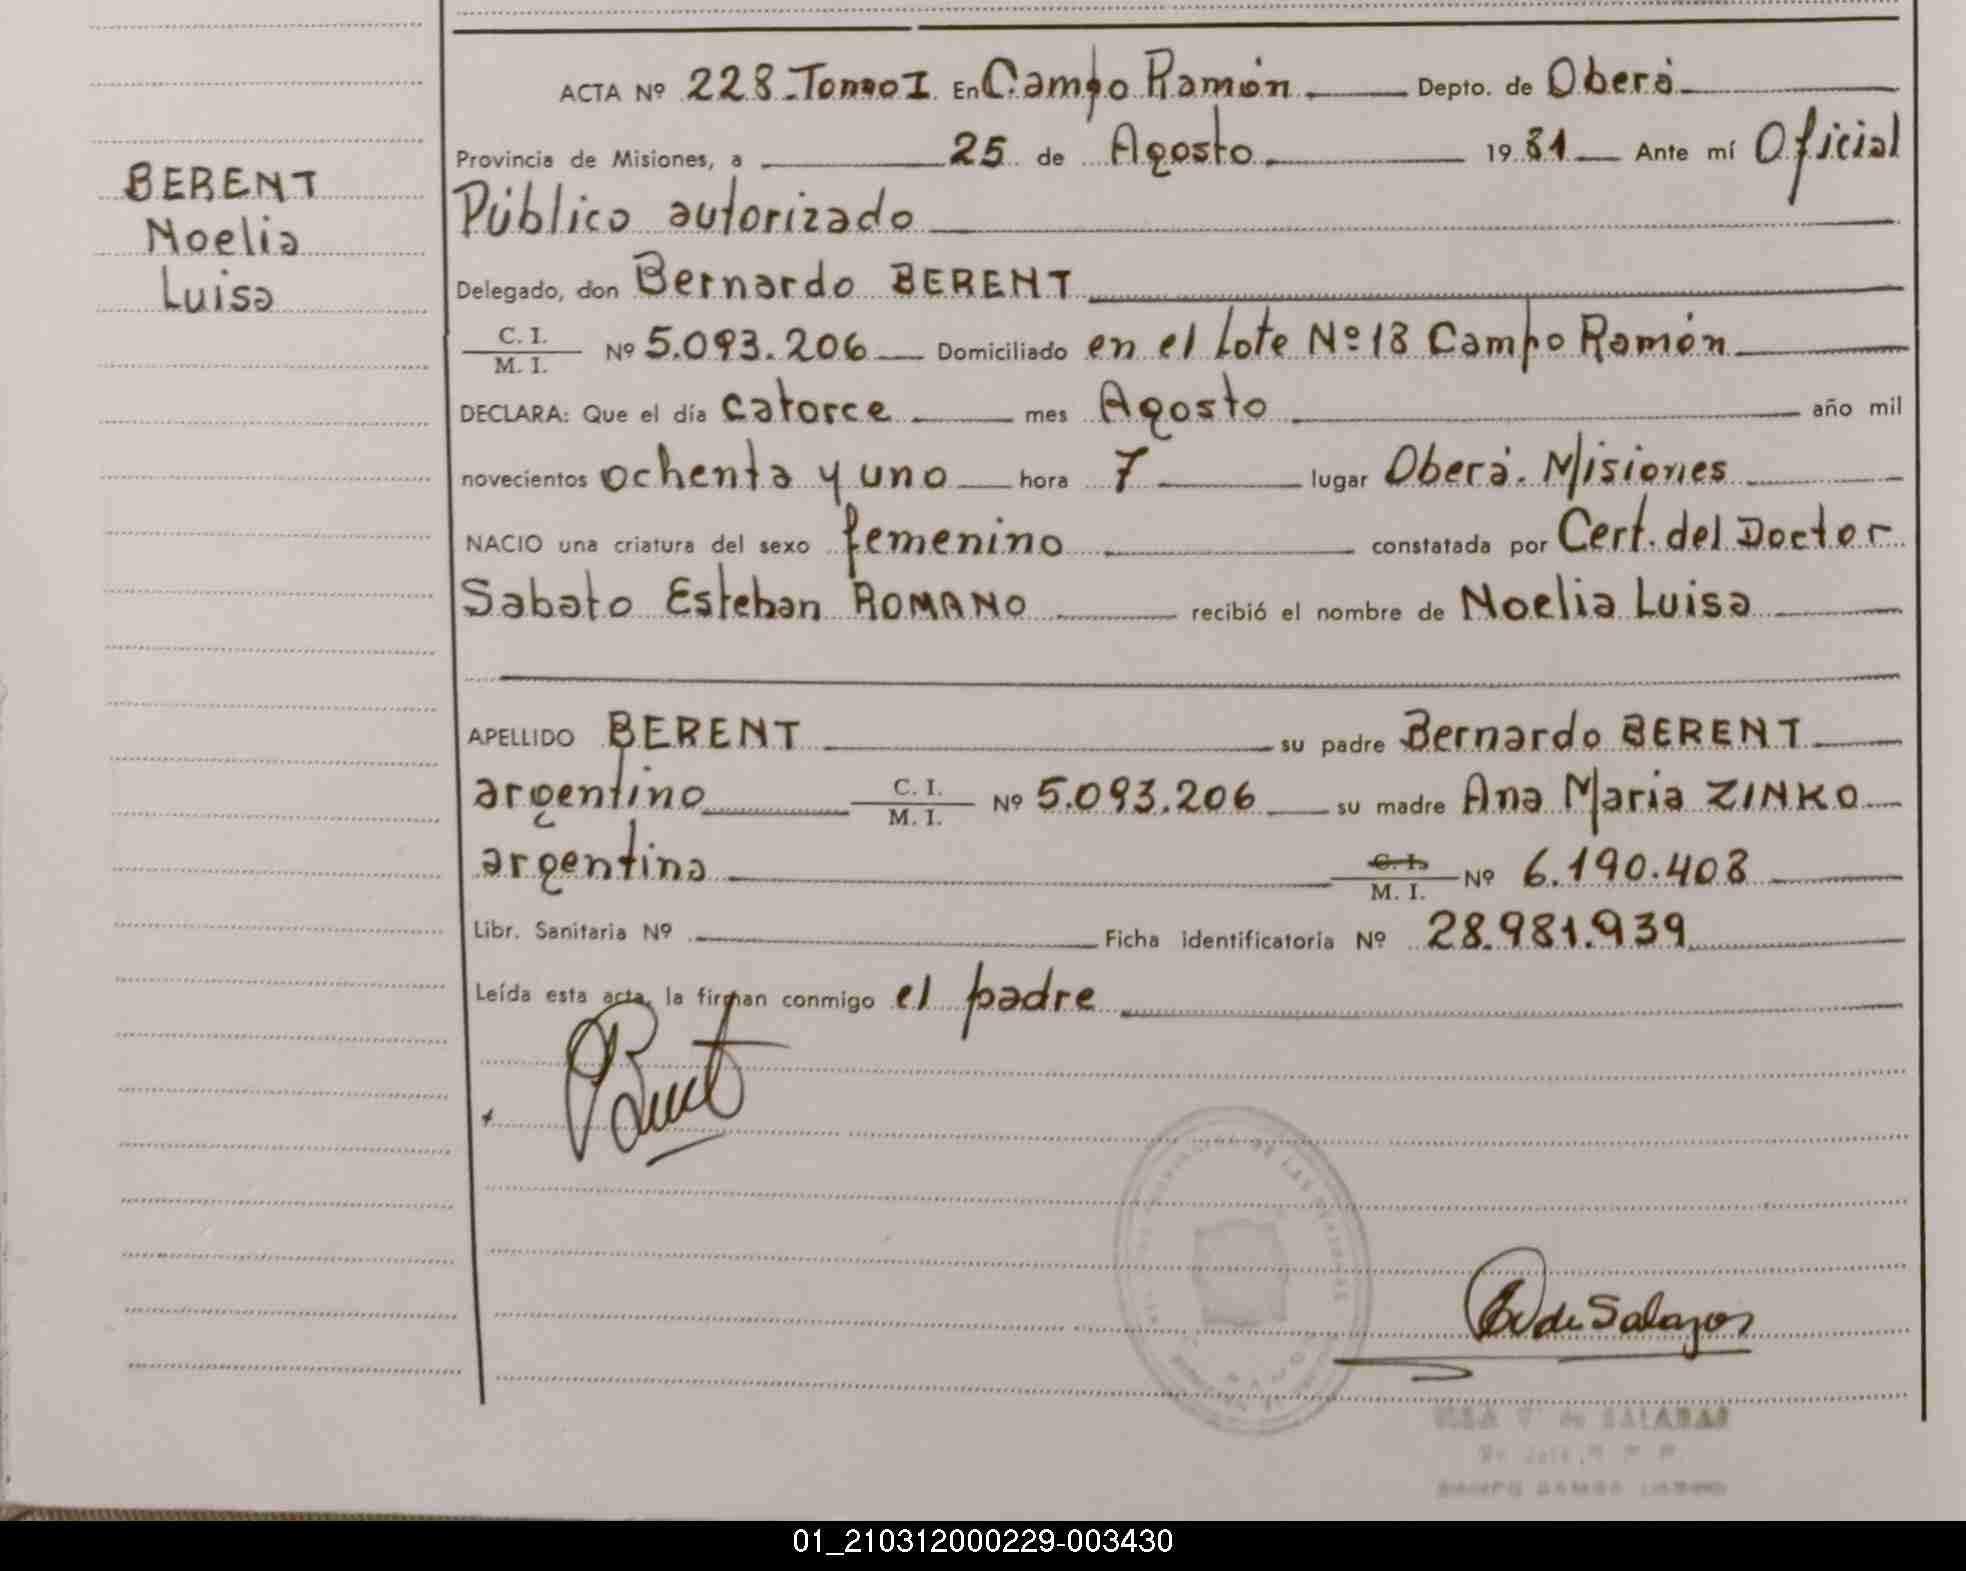 BERENT
Noelia
Luisa
ACTA Nº 228-Tomo I En Campo Ramón Depto. de Oberá
Provincia de Misiones, a 25 de Agosto 1981 Ante mí Oficial
Público autorizado
Delegado, don Bernardo BERENT
C. I.
M. I.
Nº 5.093.206 Domiciliado en el Lote Nº 18 Campo Ramón
DECLARA: Que el día catorce mes Agosto año mil
novecientos ochenta y uno hora 7 lugar Oberá. Misiones
NACIO una criatura del sexo femenino constatada por Cert. del Doctor
Sabato Esteban ROMANO recibió el nombre de Noelia Luisa
APELLIDO BERENT su padre Bernardo BERENT
argentino C. I. M. I. Nº 5.093.206 su madre Ana Maria ZINKO
argentina C. I. M. I. Nº 6.190.408
Libr. Sanitaria Nº Ficha identificatoria Nº 28.981.939
Leída esta acta, la firman conmigo el padre
de Salazar
V. de SALAZAR
01_210312000229-003430